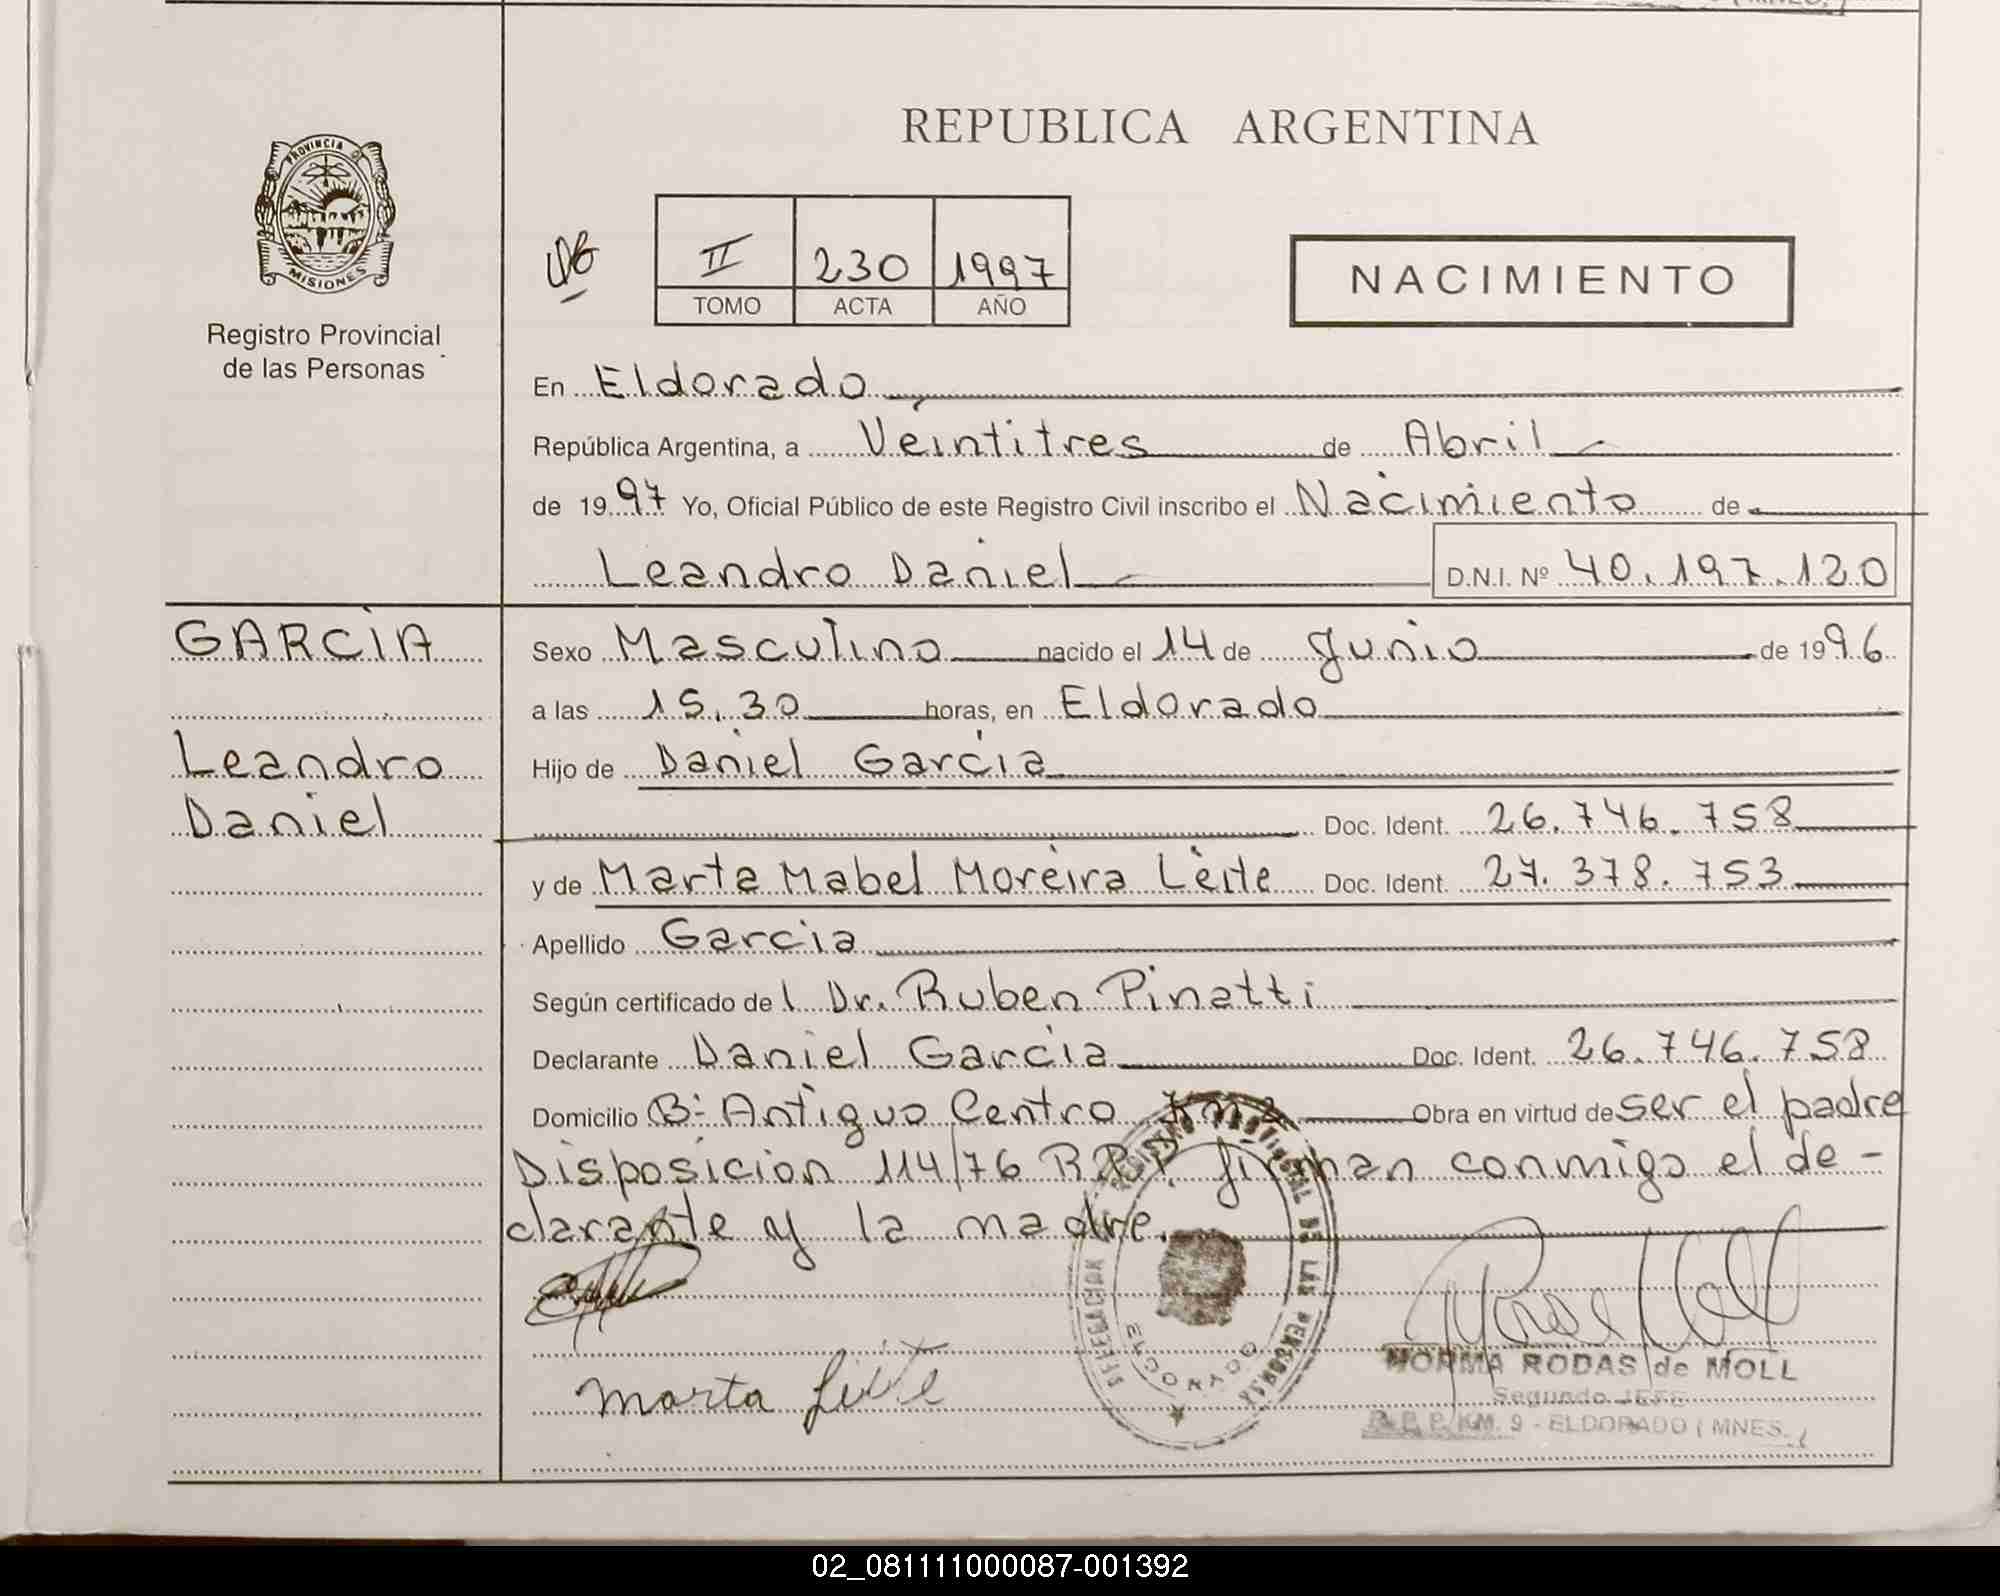 REPUBLICA ARGENTINA
PROVINCIA DE
MISIONES
Registro Provincial
de las Personas
II 230 1997
TOMO ACTA AÑO
NACIMIENTO
En Eldorado
República Argentina, a Veintitres de Abril
de 1997 Yo, Oficial Público de este Registro Civil inscribo el Nacimiento de
Leandro Daniel D.N.I. Nº 40.197.120
GARCIA
Leandro
Daniel
Sexo Masculino nacido el 14 de Junio de 1996
a las 15.30 horas, en Eldorado
Hijo de Daniel Garcia
Doc. Ident. 26.746.758
y de Marta Mabel Moreira Leite Doc. Ident. 27.378.753
Apellido Garcia
Según certificado del Dr. Ruben Pinatti
Declarante Daniel Garcia Doc. Ident. 26.746.758
Domicilio Bº Antiguo Centro Obra en virtud de ser el padre
Disposicion 114/76 R.P.P. firman conmigo el de-
clarante y la madre.
REGISTRO PROVINCIAL DE LAS PERSONAS
DELEGACION
ELDORADO
Marta Leite
NORMA RODAS de MOLL
Segundo JEFE
R.P.P. KM. 9 - ELDORADO (MNES.)
02_081111000087-001392